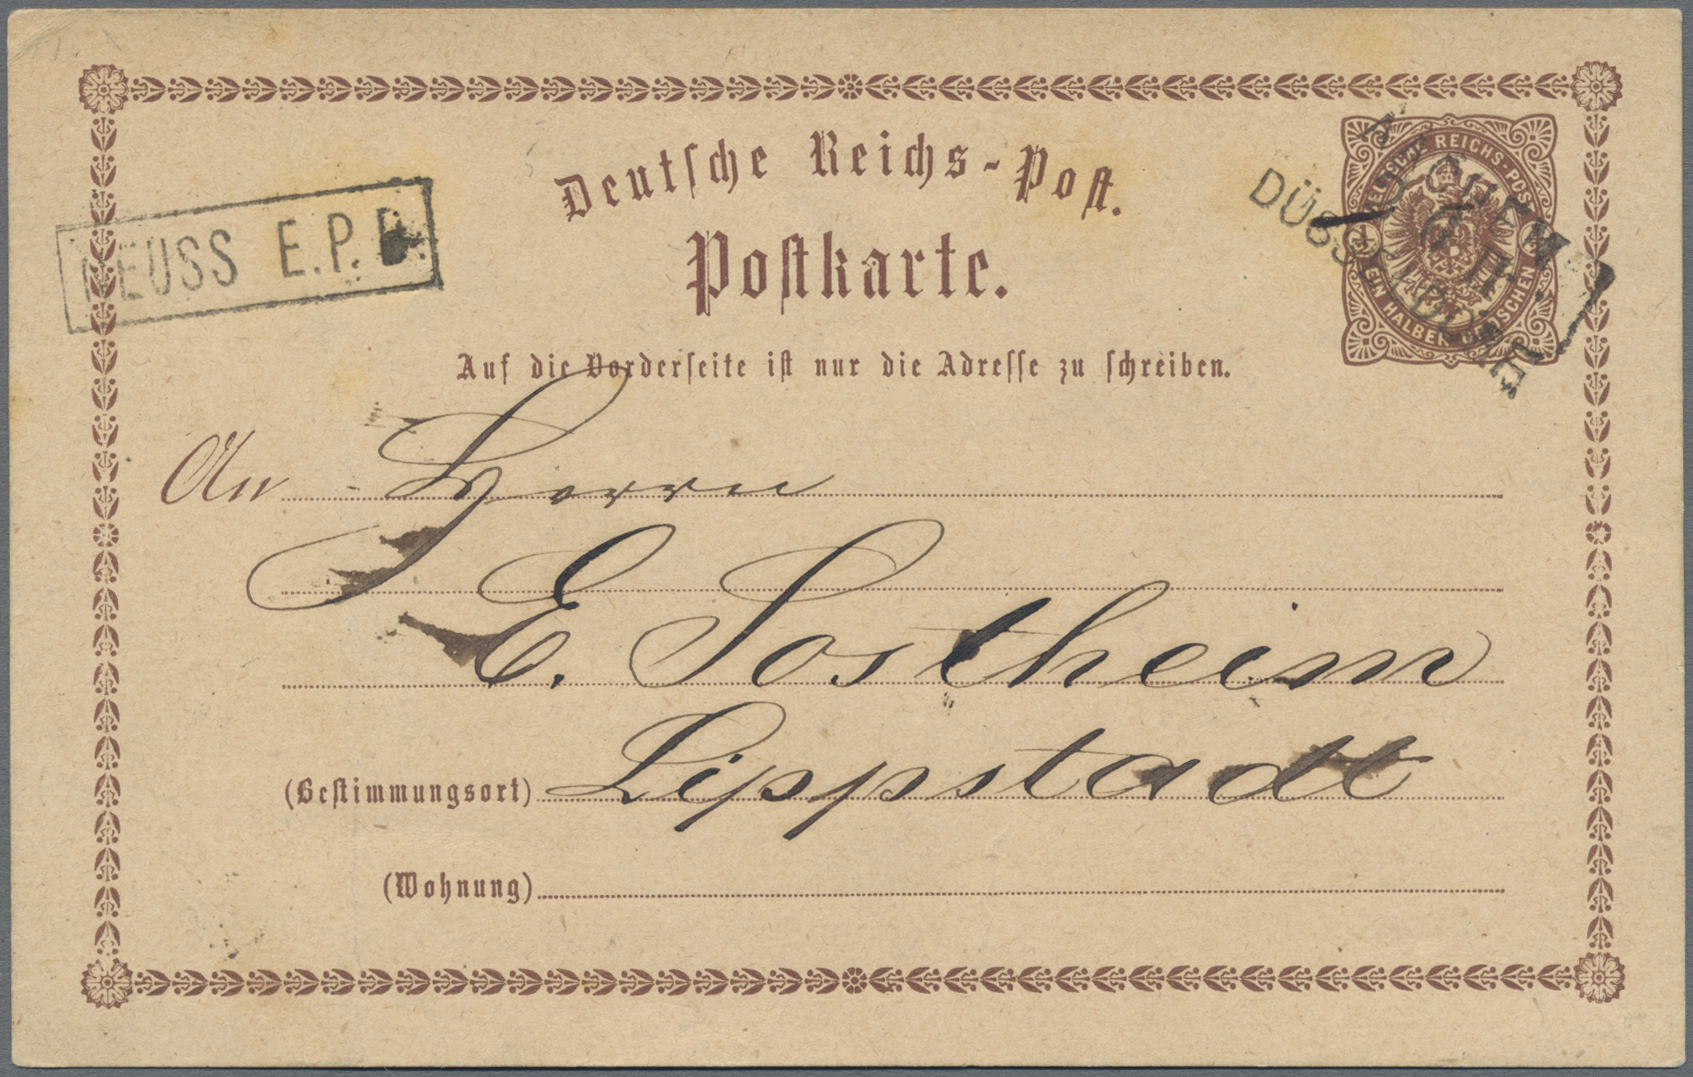 Deutsche Reichs-Post.
Postkarte.
NEUSS E.P.
DEUTSCHE REICHS-POST
EIN HALBER GROSCHEN
Auf die Vorderseite ist nur die Adresse zu schreiben.
An Herrn
E. Sostheim
(Bestimmungsort) Lippstadt
(Wohnung)